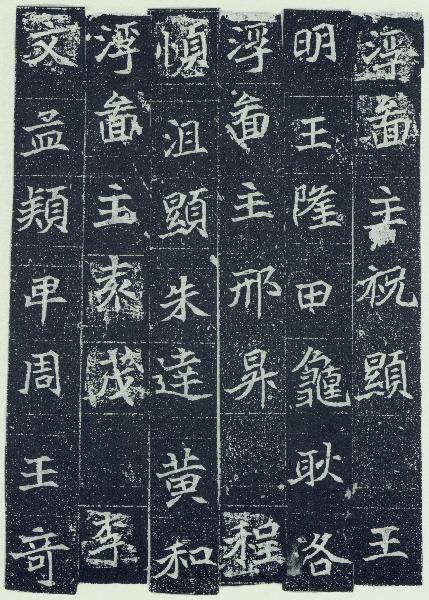 浮啚主祝顯 王
明王隆田龜耿洛
浮啚主邢昇 程
慎沮顯朱達黄和
浮啚主袁茂 李
文益類申周王奇